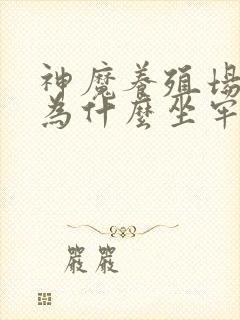 神魔養殖場
為什麼坐牢
嚴嚴